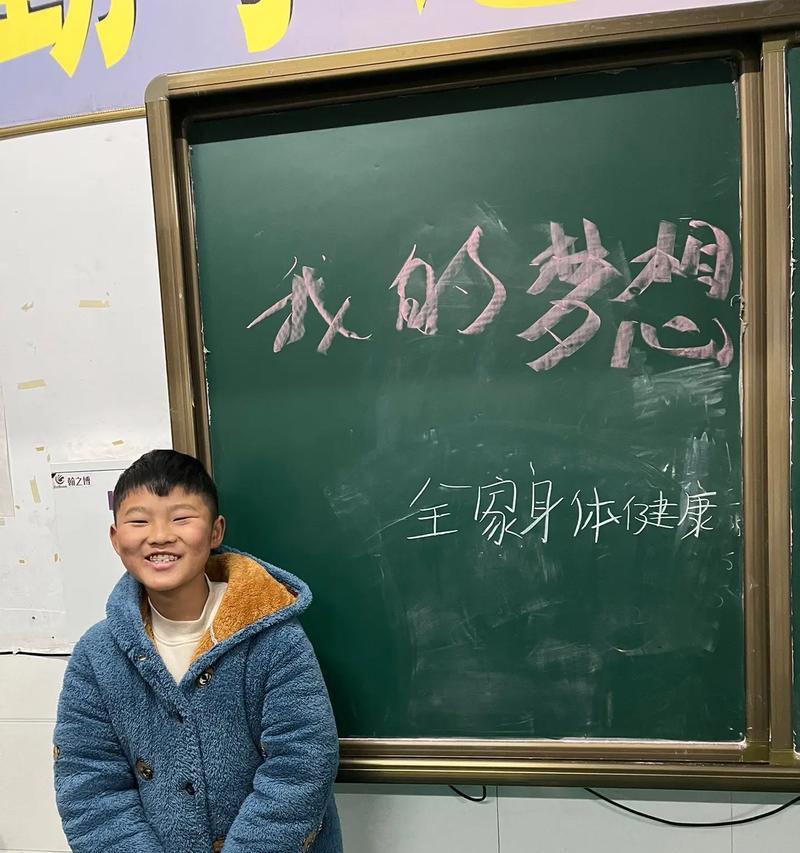 我的梦想
全家身体健康
翰之博